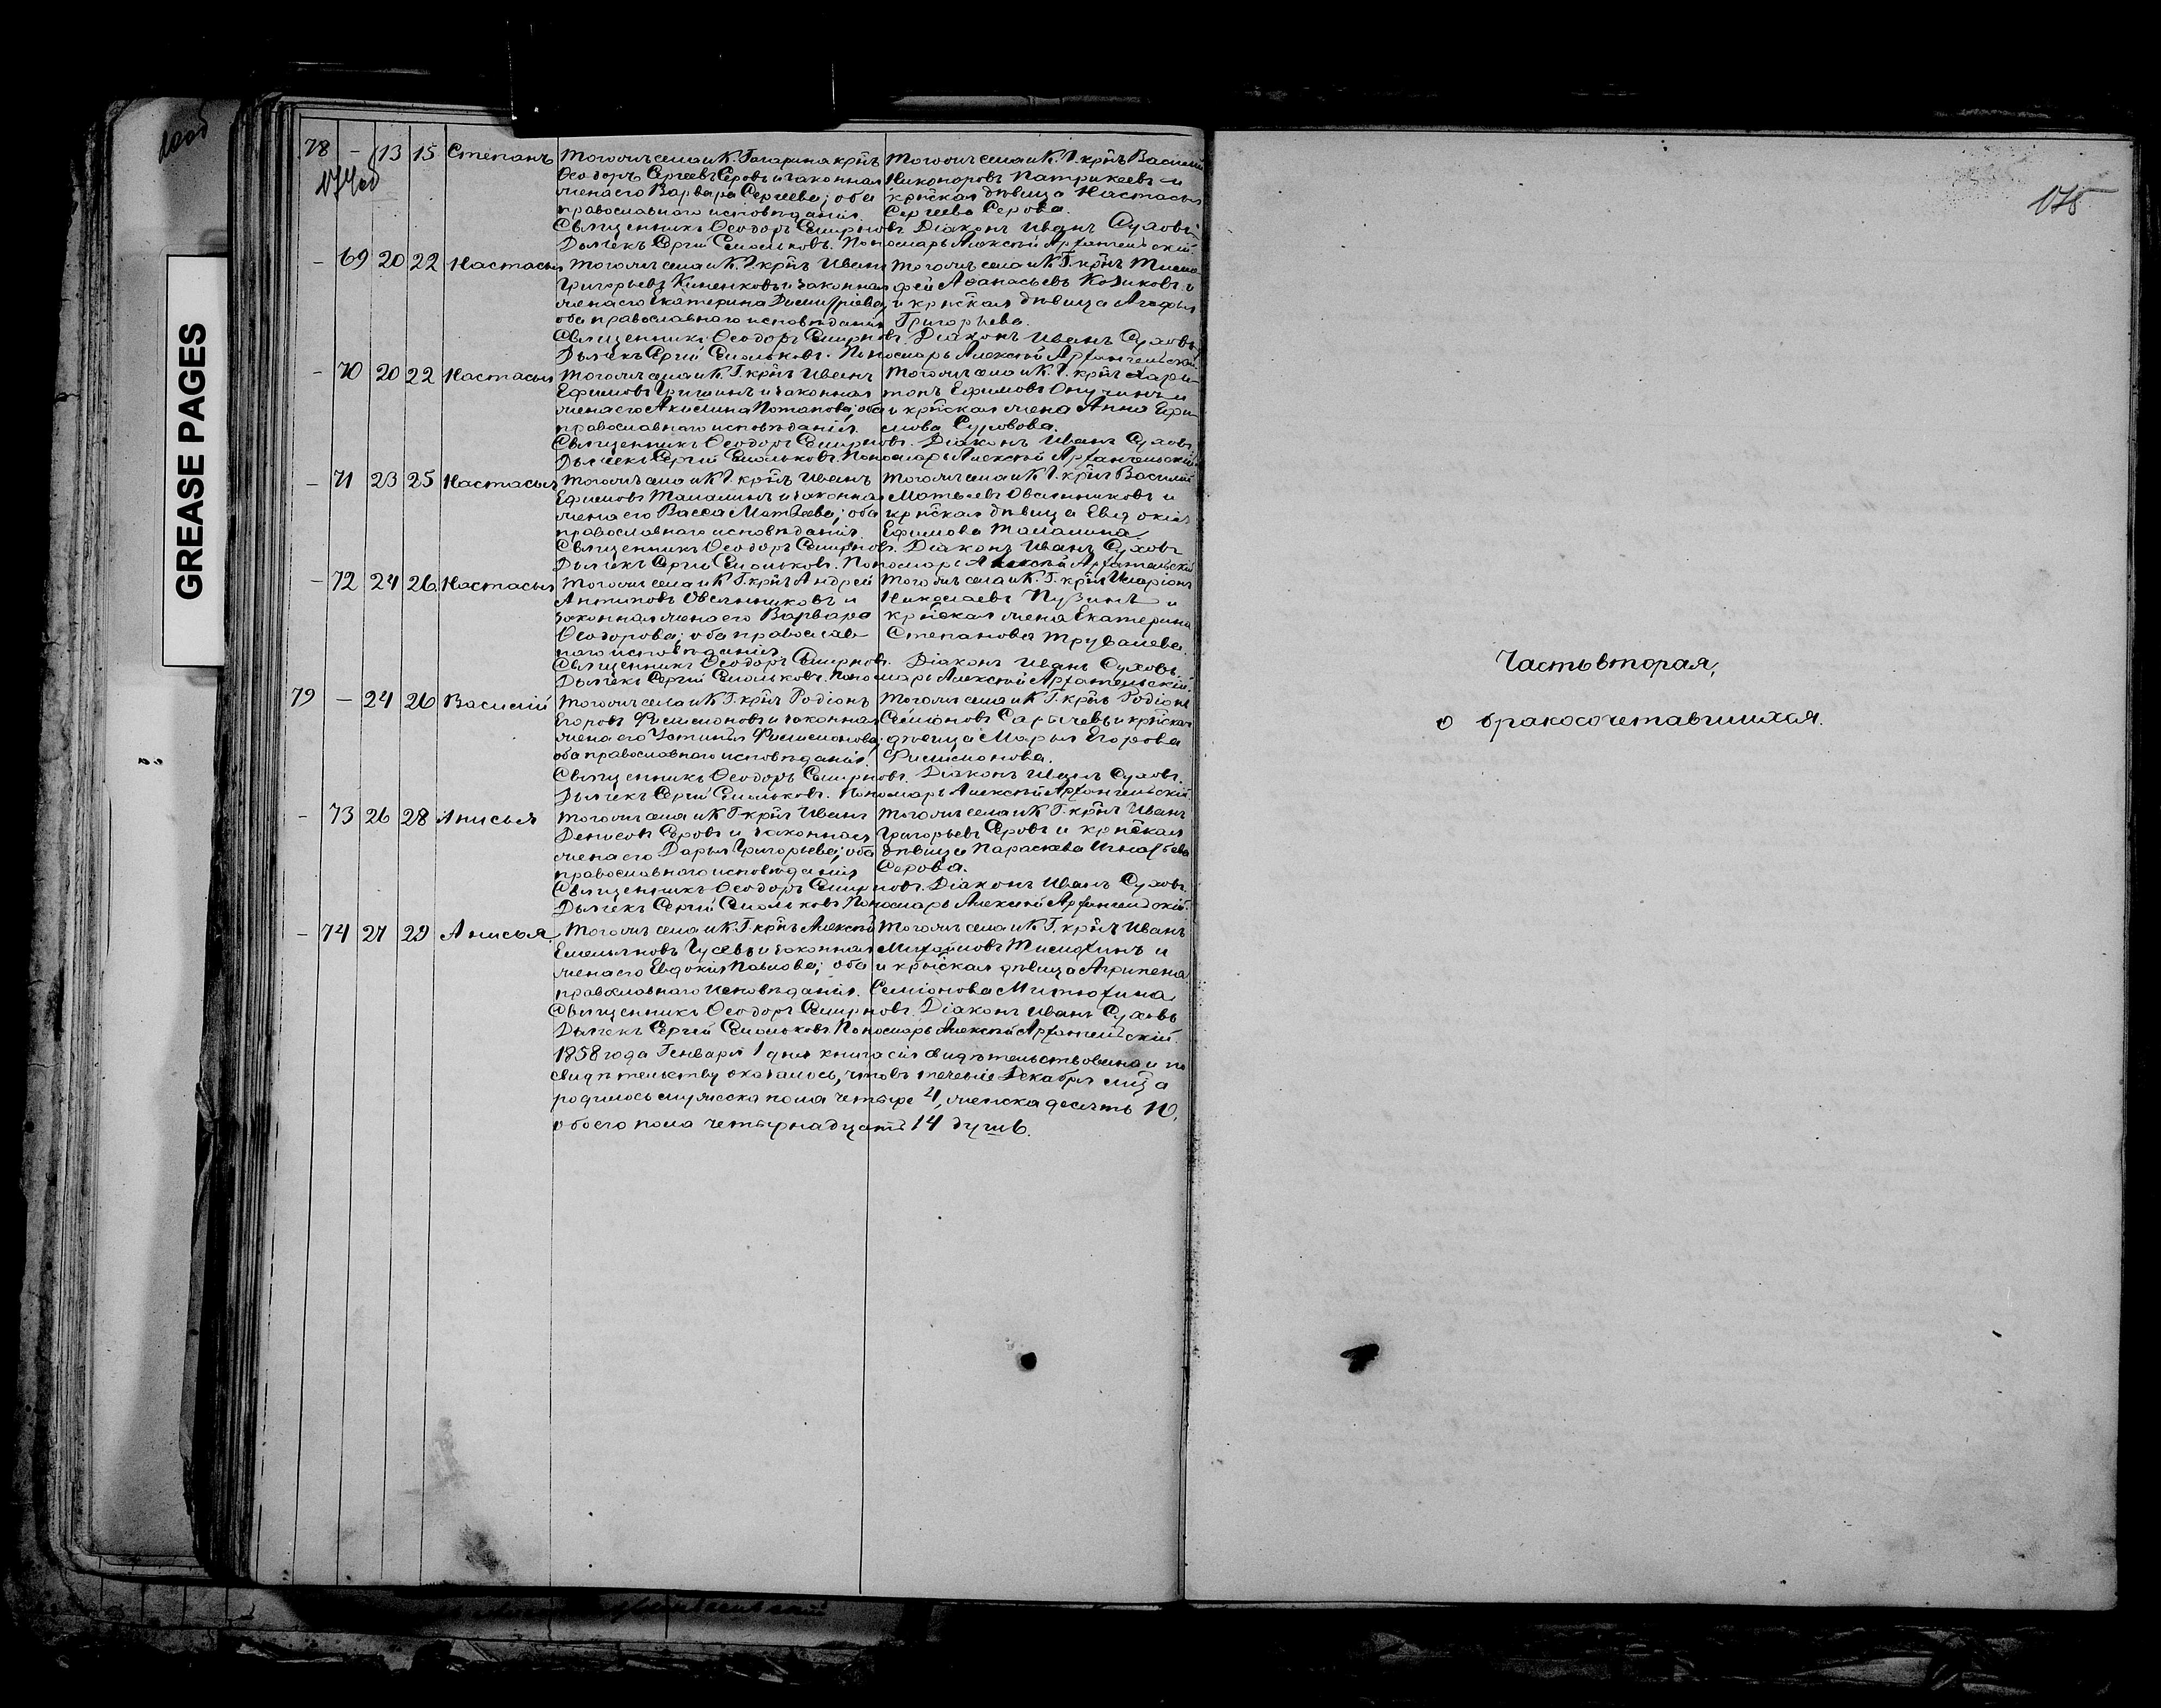 78 - 13 15 Степанъ Тогожъ села и К. Гагарина крнъ Тогожъ села и К. Г. крнъ Василій
174об
Ѳеодоръ Сергеевъ Серовъ и законная Никоноровъ Патрикеевъ и
жена его Варвара Сергеева; оба крнская дѣвица Настасья
православнаго исповѣданія. Сергеева Серова.
Священникъ Ѳеодоръ Смирновъ. Діаконъ Иванъ Суховъ.
Дьячекъ Сергій Смольковъ. Пономарь Алексѣй Архангельскій.
- 69 20 22 Настасья Тогожъ села и К. Г. крнъ Иванъ Тогожъ села и К. Г. крнъ Тимо-
Григорьевъ и законная фей Аѳанасьевъ и
жена его Екатерина Дмитріева, и крнская дѣвица Агафья
оба православнаго исповѣданія Григорьева.
Священникъ Ѳеодоръ Смирновъ. Діаконъ Иванъ Суховъ.
Дьячекъ Сергій Смольковъ. Пономарь Алексѣй Архангельскій.
- 70 20 22 Настасья Тогожъ села и К. Г. крнъ Иванъ Тогожъ села и К. Г. крнъ Хари-
Ефимовъ Гришинъ и законная тонъ Ефимовъ Онучинъ и
жена его Акилина Потапова; оба и крнская жена Анна Ефи-
православнаго исповѣданія. мова Суровова.
Священникъ Ѳеодоръ Смирновъ. Діаконъ Иванъ Суховъ.
Дьячекъ Сергій Смольковъ. Пономарь Алексѣй Архангельскій.
- 71 23 25 Настасья Тогожъ села и К Г. крнъ Иванъ Тогожъ села и К Г. крнъ Василій
Ефимовъ Талалинъ и законная Матвеевъ Овсянниковъ и
жена его Васса Матвеева; оба крнская дѣвица Евдокія
православнаго исповѣданія. Ефимова Талалина.
Священникъ Ѳеодоръ Смирновъ. Діаконъ Иванъ Суховъ
Дьячекъ Сергій Смольковъ. Пономарь Алексѣй Архангельскій
- 72 24 26 Настасья Тогожъ села и К Г. крнъ Андрей Тогожъ села и К. Г. крнъ Иларіонъ
Антиповъ Овсянниковъ и Николаевъ Пузинъ и
законная жена его Варвара крнская жена Екатерина
Ѳеодорова; оба православ- Степанова Трувалева.
наго исповѣданія
Священникъ Ѳеодоръ Смирновъ. Діаконъ Иванъ Суховъ.
Дьячекъ Сергій Смольковъ. Пономарь Алексѣй Архангельскій.
79 - 24 26 Василій Тогожъ села и К Г. крнъ Родіонъ Тогожъ села и К Г. крнъ Родіонъ
Егоровъ Филимоновъ и законная Семіоновъ Сарычевъ и крнская
жена его Устинья Филимонова; дѣвица Марья Егорова
оба православнаго исповѣданія. Филимонова.
Священникъ Ѳеодоръ Смирновъ. Діаконъ Иванъ Суховъ.
Дьячекъ Сергій Смольковъ. Пономарь Алексѣй Архангельскій
- 73 26 28 Анисья Тогожъ села и К Г. крнъ Иванъ Тогожъ села и К Г. крнъ Иванъ
Денисовъ Серовъ и законная Григорьевъ Серовъ и крнская
жена его Дарья Григорьева; оба дѣвица Параскева Игнатьева
православнаго исповѣданія Серова.
Священникъ Ѳеодоръ Смирновъ. Діаконъ Иванъ Суховъ.
Дьячекъ Сергій Смольковъ Пономарь Алексѣй Архангельскій.
- 74 27 29 Анисья Тогожъ села и К. Г. крнъ Алексѣй Тогожъ села и К Г. крнъ Иванъ
Емельяновъ Гусевъ и законная Михайловъ и
жена его Евдокія Павлова; оба и крнская дѣвица Агрипена
православнаго исповѣданія. Семіонова Митюхина
Священникъ Ѳеодоръ Смирновъ. Діаконъ Иванъ Суховъ
Дьячекъ Сергій Смольковъ Пономарь Алексѣй Архангельскій.
1858 года Генваря 1 дня книга сія свидѣтельствована и по
свидѣтельству оказалось, что въ теченіе Декабря мца
родилось мужеска пола четыре 4, женска десять 10,
обоего пола четырнадцать 14 душъ.
GREASE PAGES
175
Часть вторая,
о бракосочетавшихся.